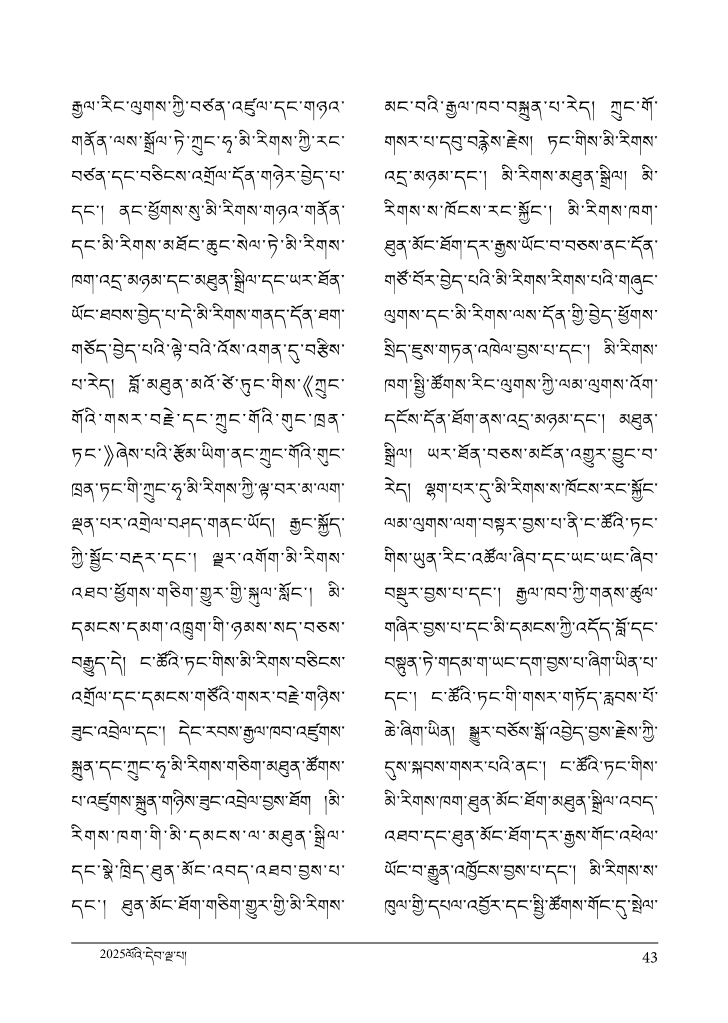 རྒྱལ་རིང་ལུགས་ཀྱི་བཙན་འཛུལ་དང་གཉའ་
གནོན་ལས་སྒྲོལ་ཏེ་ཀྲུང་ཧྭ་མི་རིགས་ཀྱི་རང་
བཙན་དང་བཅིངས་འགྲོལ་དོན་གཉེར་བྱེད་པ་
དང་། ནང་ཕྱོགས་སུ་མི་རིགས་གཉའ་གནོན་
དང་མི་རིགས་མཐོང་ཆུང་སེལ་ཏེ་མི་རིགས་
ཁག་འདྲ་མཉམ་དང་མཐུན་སྒྲིལ་དང་ཡར་ཐོན་
ཡོང་ཐབས་བྱེད་པ་དེ་མི་རིགས་གནད་དོན་ཐག་
གཅོད་བྱེད་པའི་ལྟེ་བའི་འོས་འགན་དུ་བརྩིས་
པ་རེད། བློ་མཐུན་མའོ་ཙེ་ཏུང་གིས་《ཀྲུང་
གོའི་གསར་བརྗེ་དང་ཀྲུང་གོའི་གུང་ཁྲན་
ཏང་》ཞེས་པའི་རྩོམ་ཡིག་ནང་ཀྲུང་གོའི་གུང་
ཁྲན་ཏང་གི་ཀྲུང་ཧྭ་མི་རིགས་ཀྱི་ལྟ་བར་མ་ལག་
ལྡན་པར་འགྲེལ་བཤད་གནང་ཡོད། རྒྱང་སྐྱོད་
ཀྱི་སྦྱོང་བརྡར་དང་། ལྗར་འགོག་མི་རིགས་
འཐབ་ཕྱོགས་གཅིག་གྱུར་གྱི་སྐུལ་སློང་། མི་
དམངས་དམག་འཁྲུག་གི་ཉམས་སད་བཅས་
བརྒྱུད་དེ། ང་ཚོའི་ཏང་གིས་མི་རིགས་བཅིངས་
འགྲོལ་དང་དམངས་གཙོའི་གསར་བརྗེ་གཉིས་
ཟུང་འབྲེལ་དང་། དེང་རབས་རྒྱལ་ཁབ་འཛུགས་
སྐྲུན་དང་ཀྲུང་ཧྭ་མི་རིགས་གཅིག་མཐུན་ཚོགས་
པ་འཛུགས་སྐྲུན་གཉིས་ཟུང་འབྲེལ་བྱས་ཐོག །མི་
རིགས་ཁག་གི་མི་དམངས་ལ་མཐུན་སྒྲིལ་
དང་སྣེ་ཁྲིད་ཐུན་མོང་འབད་འཐབ་བྱས་པ་
དང་། ཐུན་མོང་ཐོག་གཅིག་གྱུར་གྱི་མི་རིགས་
མང་བའི་རྒྱལ་ཁབ་བསྐྲུན་པ་རེད། ཀྲུང་གོ་
གསར་པ་དབུ་བརྙེས་རྗེས། ཏང་གིས་མི་རིགས་
འདྲ་མཉམ་དང་། མི་རིགས་མཐུན་སྒྲིལ། མི་
རིགས་ས་ཁོངས་རང་སྐྱོང་། མི་རིགས་ཁག་
ཐུན་མོང་ཐོག་དར་རྒྱས་ཡོང་བ་བཅས་ནང་དོན་
གཙོ་བོར་བྱེད་པའི་མི་རིགས་རིགས་པའི་གཞུང་
ལུགས་དང་མི་རིགས་ལས་དོན་གྱི་བྱེད་ཕྱོགས་
སྲིད་ཇུས་གཏན་འཁེལ་བྱས་པ་དང་། མི་རིགས་
ཁག་སྤྱི་ཚོགས་རིང་ལུགས་ཀྱི་ལམ་ལུགས་འོག་
དངོས་དོན་ཐོག་ནས་འདྲ་མཉམ་དང་། མཐུན་
སྒྲིལ། ཡར་ཐོན་བཅས་མངོན་འགྱུར་བྱུང་བ་
རེད། ལྷག་པར་དུ་མི་རིགས་ས་ཁོངས་རང་སྐྱོང་
ལམ་ལུགས་ལག་བསྟར་བྱས་པ་ནི་ང་ཚོའི་ཏང་
གིས་ཡུན་རིང་འཚོལ་ཞིབ་དང་ཡང་ཡང་ཞིབ་
བསྡུར་བྱས་པ་དང་། རྒྱལ་ཁབ་ཀྱི་གནས་ཚུལ་
གཞིར་བྱས་པ་དང་མི་དམངས་ཀྱི་འདོད་བློ་དང་
བསྟུན་ཏེ་གདམ་ག་ཡང་དག་བྱས་པ་ཞིག་ཡིན་པ་
དང་། ང་ཚོའི་ཏང་གི་གསར་གཏོད་རླབས་པོ་
ཆེ་ཞིག་ཡིན། སྒྱུར་བཅོས་སྒོ་འབྱེད་བྱས་རྗེས་ཀྱི་
དུས་སྐབས་གསར་པའི་ནང་། ང་ཚོའི་ཏང་གིས་
མི་རིགས་ཁག་ཐུན་མོང་ཐོག་མཐུན་སྒྲིལ་འབད་
འཐབ་དང་ཐུན་མོང་ཐོག་དར་རྒྱས་གོང་འཕེལ་
ཡོང་བ་རྒྱུན་འཁྱོངས་བྱས་པ་དང་། མི་རིགས་ས་
ཁུལ་གྱི་དཔལ་འབྱོར་དང་སྤྱི་ཚོགས་གོང་དུ་སྤེལ་
2025ལོའི་དེབ་ལྔ་པ།
43